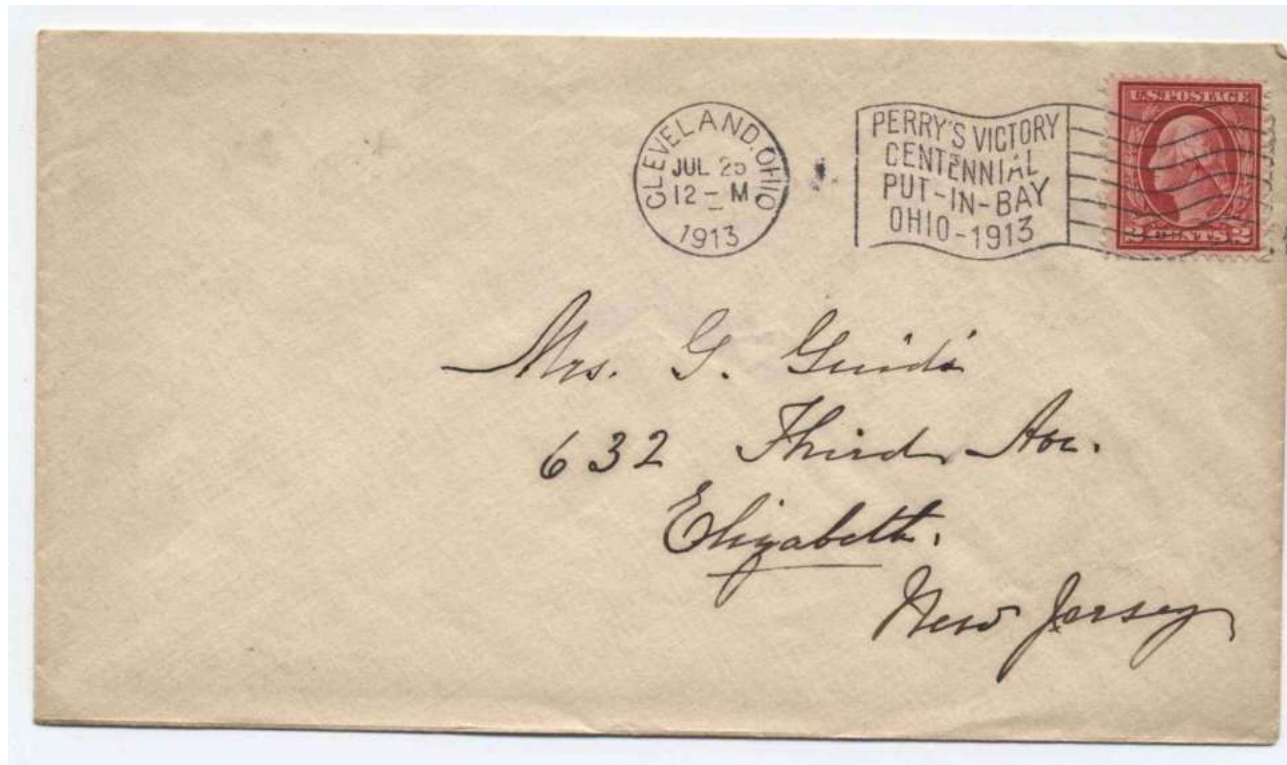 CLEVELAND, OHIO
JUL 25
12 - M
1913
PERRY'S VICTORY
CENTENNIAL
PUT-IN-BAY
OHIO - 1913
U.S. POSTAGE
2 CENTS 2
Mrs. G. Guidi
632 Third Ave.
Elizabeth.
New Jersey